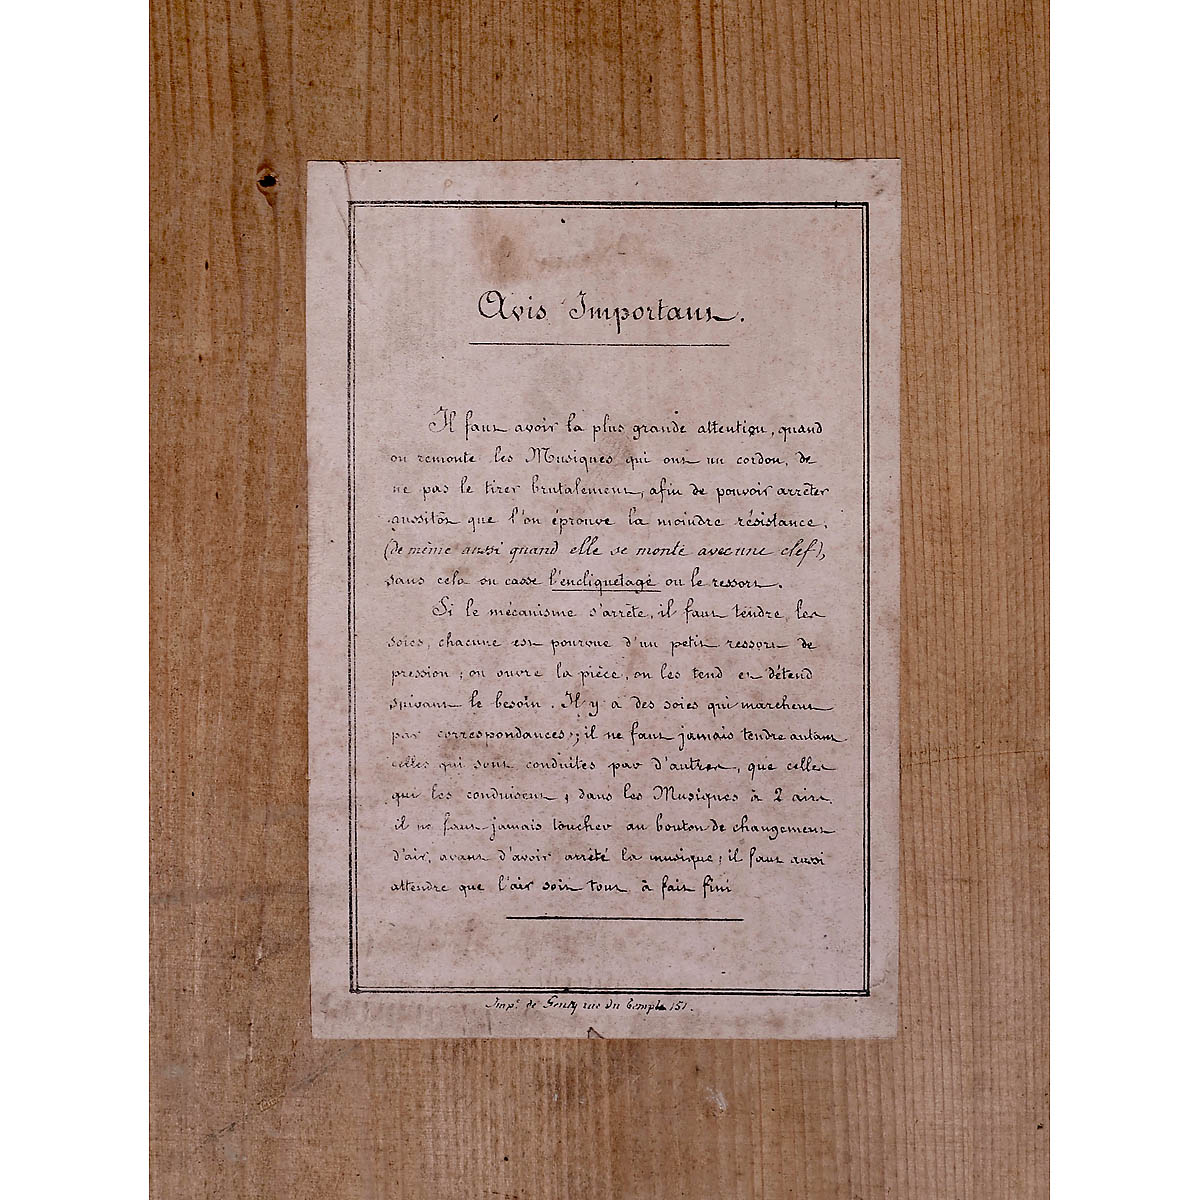 Avis Important.
Il faut avoir la plus grande attention, quand
on remonte les Musiques qui ont un cordon, de
ne pas le tirer brutalement, afin de pouvoir arrêter
aussitôt que l'on éprouve la moindre résistance,
(de même aussi quand elle se monte avec une clef),
sans cela on casse l'encliquetage ou le ressort.
Si le mécanisme s'arrête, il faut tendre les
soies, chacune est pourvue d'un petit ressort de
pression; on ouvre la pièce, on les tend et détend
suivant le besoin. Il y a des soies qui marchent
par correspondances; il ne faut jamais tendre autant
celles qui sont conduites par d'autres, que celles
qui les conduisent, dans les Musiques à 2 airs,
il ne faut jamais toucher au bouton de changement
d'air, avant d'avoir arrêté la musique; il faut aussi
attendre que l'air soit tout à fait fini
Imp. de Genty rue du Temple 151.